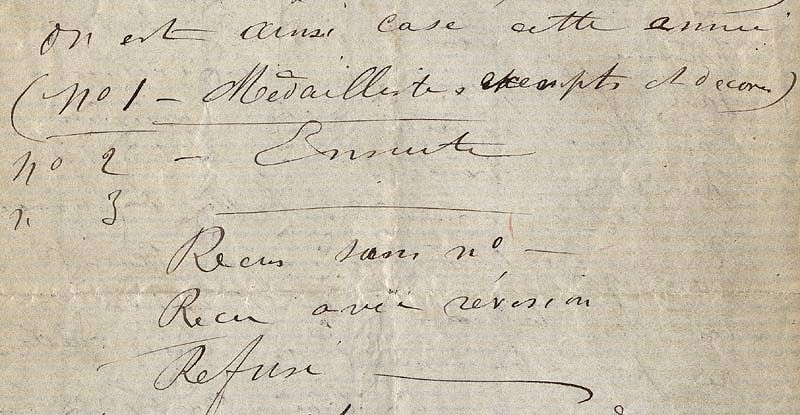 on est ainsi casé cette année
(No 1 - Médaillistes exempts et décorés)
no 2 - Ensuite
n. 3
Recus sans no -
Recu avec révision
Refusé